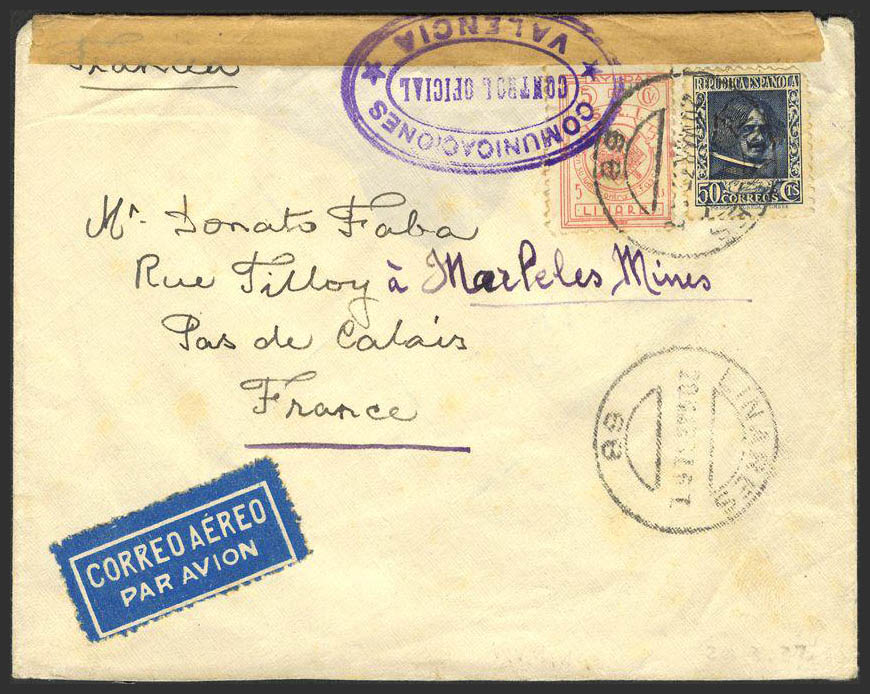 Francia
COMUNICACIONES
★ VALENCIA ★
CONTROL OFICIAL
5 Cts
5
LINARES
REPUBLICA ESPAÑOLA
50 CTS
CORREOS
68
Mr. Donato Faba
Rue Tilloy à Marles les Mines
Pas de Calais
France
LINARES
68
CORREO AÉREO
PAR AVION